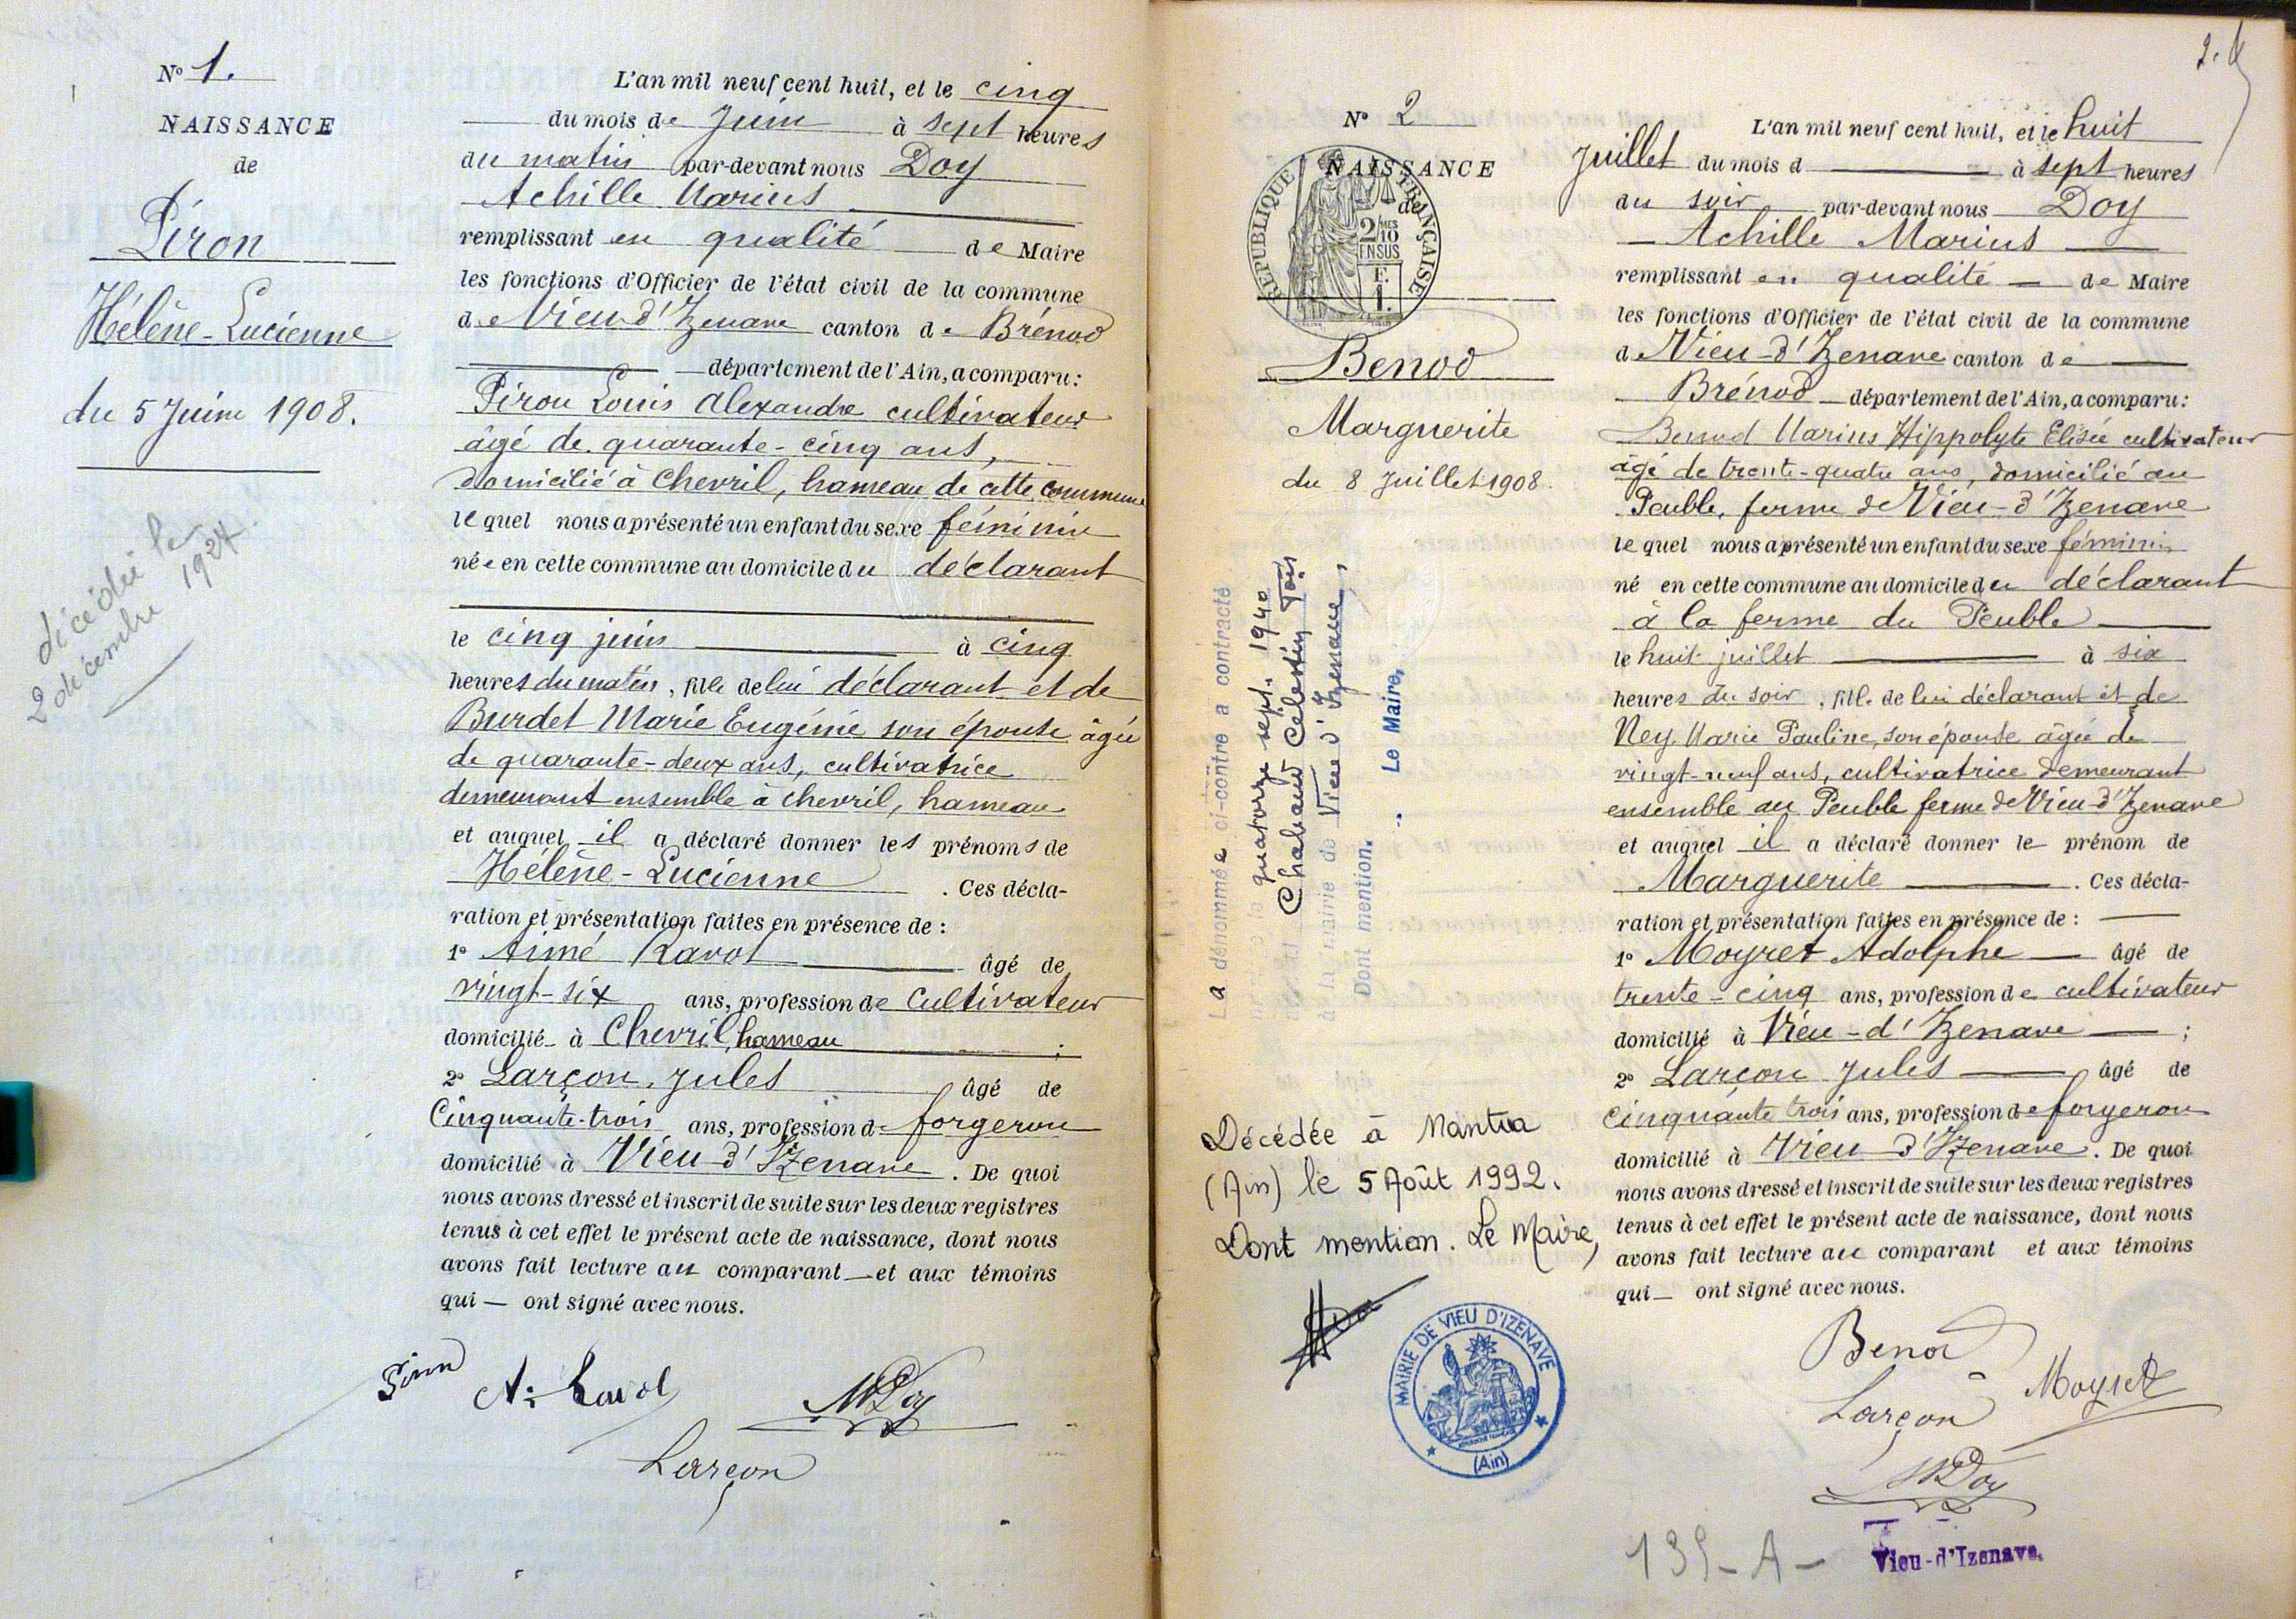 N° 1.
NAISSANCE
de
Piron
Hélène-Lucienne
du 5 Juin 1908.
décédée le
2 décembre 1924
L'an mil neuf cent huit, et le cinq
du mois de Juin à sept heures
du matin par-devant nous Doy
Achille Marius
remplissant en qualité de Maire
les fonctions d'Officier de l'état civil de la commune
de Vieu-d'Izenave canton de Brénod
département de l'Ain, a comparu:
Piron Louis Alexandre cultivateur
âgé de quarante-cinq ans,
domicilié à Chevril, hameau de cette commune
lequel nous a présenté un enfant du sexe féminin
née en cette commune au domicile du déclarant
le cinq juin à cinq
heures du matin, fille de lui déclarant et de
Burdet Marie Eugénie son épouse âgée
de quarante-deux ans, cultivatrice
demeurant ensemble à Chevril, hameau
et auquel il a déclaré donner les prénoms de
Hélène-Lucienne. Ces décla-
ration et présentation faites en présence de:
1° Aimé Ravot âgé de
vingt-six ans, profession de cultivateur
domicilié à Chevril, hameau;
2° Larçon Jules âgé de
Cinquante-trois ans, profession de forgeron
domicilié à Vieu-d'Izenave. De quoi
nous avons dressé et inscrit de suite sur les deux registres
tenus à cet effet le présent acte de naissance, dont nous
avons fait lecture au comparant et aux témoins
qui ont signé avec nous.
Piron A. Ravot MDoy
Larçon
2.
N° 2
NAISSANCE
de
RÉPUBLIQUE FRANÇAISE
2/10
EN SUS
F.
1.
Benod
Marguerite
du 8 Juillet 1908.
La dénommée ci-contre a contracté
le quatorze sept. 1940
Chabaud Célestin
à la mairie de Vieu d'Izenave,
Dont mention. Le Maire,
Décédée à Nantua
(Ain) le 5 Août 1992.
Dont mention. Le Maire,
MAIRIE DE VIEU D'IZENAVE
RÉPUBLIQUE FRANÇAISE
(Ain)
L'an mil neuf cent huit, et le huit
Juillet du mois d à sept heures
du soir par-devant nous Doy
Achille Marius
remplissant en qualité de Maire
les fonctions d'Officier de l'état civil de la commune
de Vieu-d'Izenave canton de
Brénod département de l'Ain, a comparu:
Benod Marius Hippolyte Elisée cultivateur
âgé de trente-quatre ans, domicilié au
Peuble, ferme de Vieu-d'Izenave
lequel nous a présenté un enfant du sexe féminin
né en cette commune au domicile du déclarant
à la ferme du Peuble
le huit juillet à six
heures du soir, fille de lui déclarant et de
Ney Marie Pauline, son épouse âgée de
vingt-neuf ans, cultivatrice demeurant
ensemble au Peuble ferme de Vieu-d'Izenave
et auquel il a déclaré donner le prénom de
Marguerite. Ces décla-
ration et présentation faites en présence de:
1° Moyret Adolphe âgé de
trente-cinq ans, profession de cultivateur
domicilié à Vieu-d'Izenave;
2° Larçon Jules âgé de
cinquante trois ans, profession de forgeron
domicilié à Vieu-d'Izenave. De quoi
nous avons dressé et inscrit de suite sur les deux registres
tenus à cet effet le présent acte de naissance, dont nous
avons fait lecture au comparant et aux témoins
qui ont signé avec nous.
Benod
Moyret
Larçon
MDoy
139-A-
Vieu-d'Izenave.